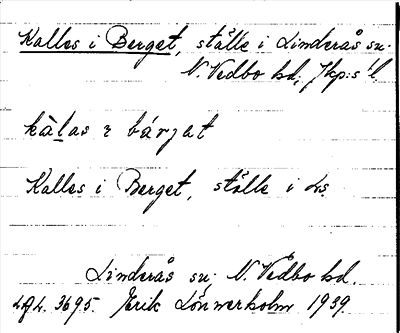 Kalles i Berget, ställe i Linderås sn.
N. Vedbo hd, Jkp:s l.
kàlas ɛ bárjat
Kalles i Berget, ställe i Ls.
Linderås sn; N. Vedbo hd.
LAL. 3695. Erik Lönnerholm 1939.